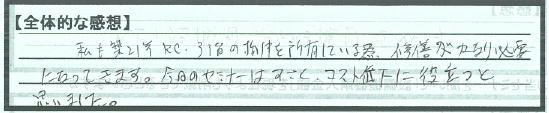 【全体的な感想】
私も築21年RC、31年の物件を所有している為、修繕がかなり必要
になってきます。今日のセミナーはすごく、コスト低下に役立つと
思いました。